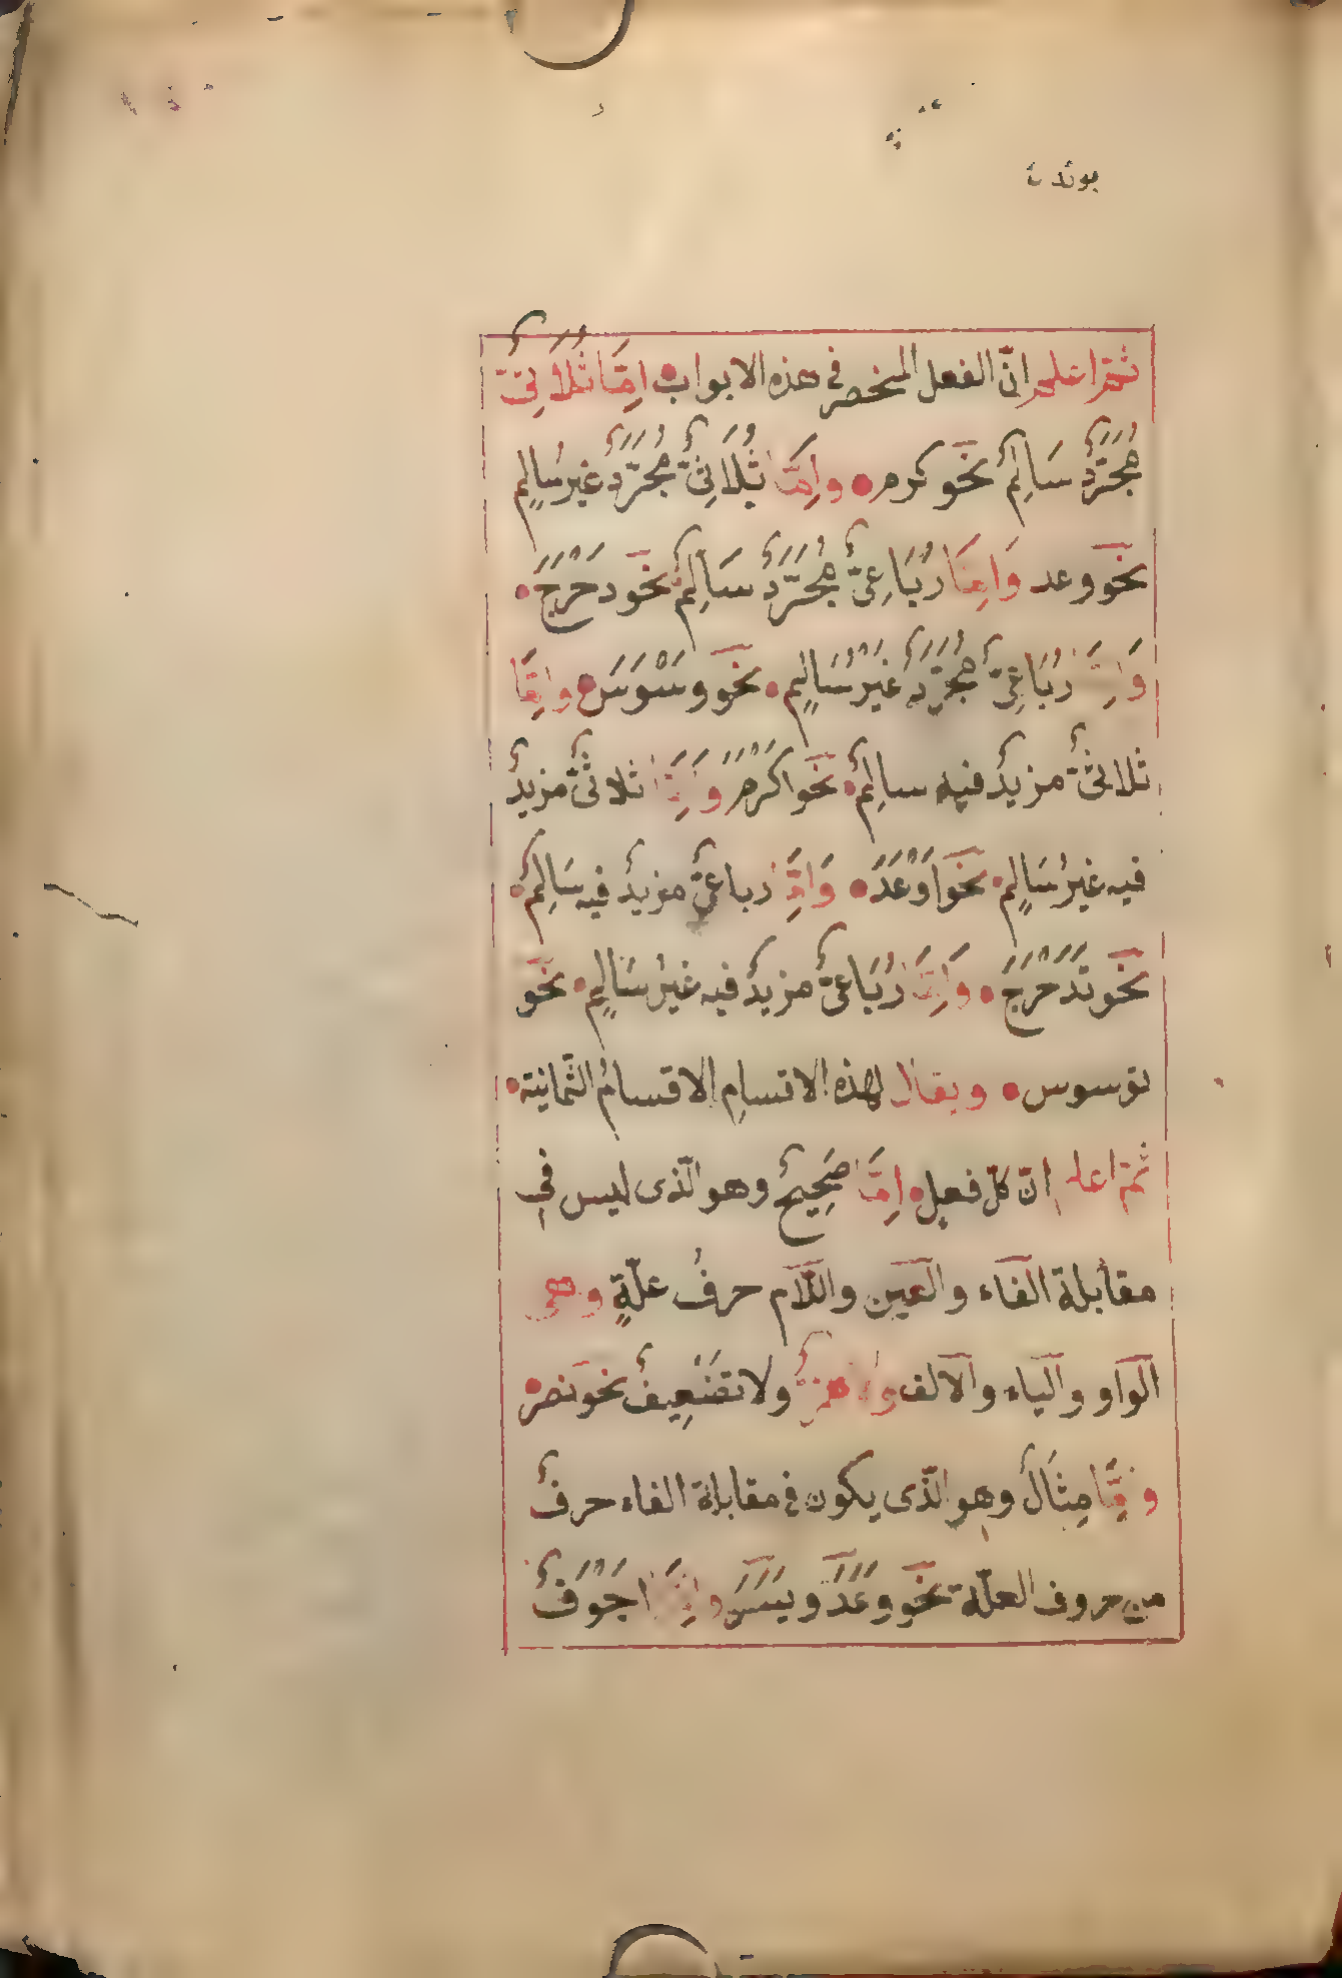 ثمّ اعلم انّ الفعل المنحصر فى هذه الابواب امّا ثُلَاثِىٌّ
مُجَرَّدٌ سَالِمٌ نحو كرم وامّا ثُلَاثِىٌّ مُجَرَّدٌ غيرُ سَالِمٍ
نحو وعد وَامّا رُبَاعِىٌّ مُجَرَّدٌ سَالِمٌ نحو دَحْرَجَ
وَامَّا رُبَاعِىٌّ مُجَرَّدٌ غَيْرُ سَالِمٍ نحو وَسْوَسَ وامَّا
ثلاثىٌّ مزيدٌ فيه سالِمٌ نحو اَكْرَمَ وَامَّا ثلاثىٌّ مزيدٌ
فيه غيرُ سَالِمٍ نحو اَوْعَدَ وَامَّا رباعىٌّ مزيدٌ فيه سَالِمٌ
نحو تَدَحْرَجَ وَامَّا رُبَاعىٌّ مزيدٌ فيه غيرُ سَالِمٍ نحو
توسوس ويقال لهذه الاقسامِ الاقسامُ الثّمانية
ثمّ اعلم انّ كلّ فعلٍ امَّا صَحِيحٌ وهو الّذى ليس فى
مقابلة الفاء والعين واللّام حرفُ علّةٍ وهى
الواو والياء والالف ولا همزةٌ ولا تضعيفٌ نحو نصر
وامَّا مِثَالٌ وهو الّذى يكون فى مقابلة الفاء حرفٌ
من حروف العلّة نحو وَعَدَ ويَسَرَ وامَّا اَجْوَفٌ